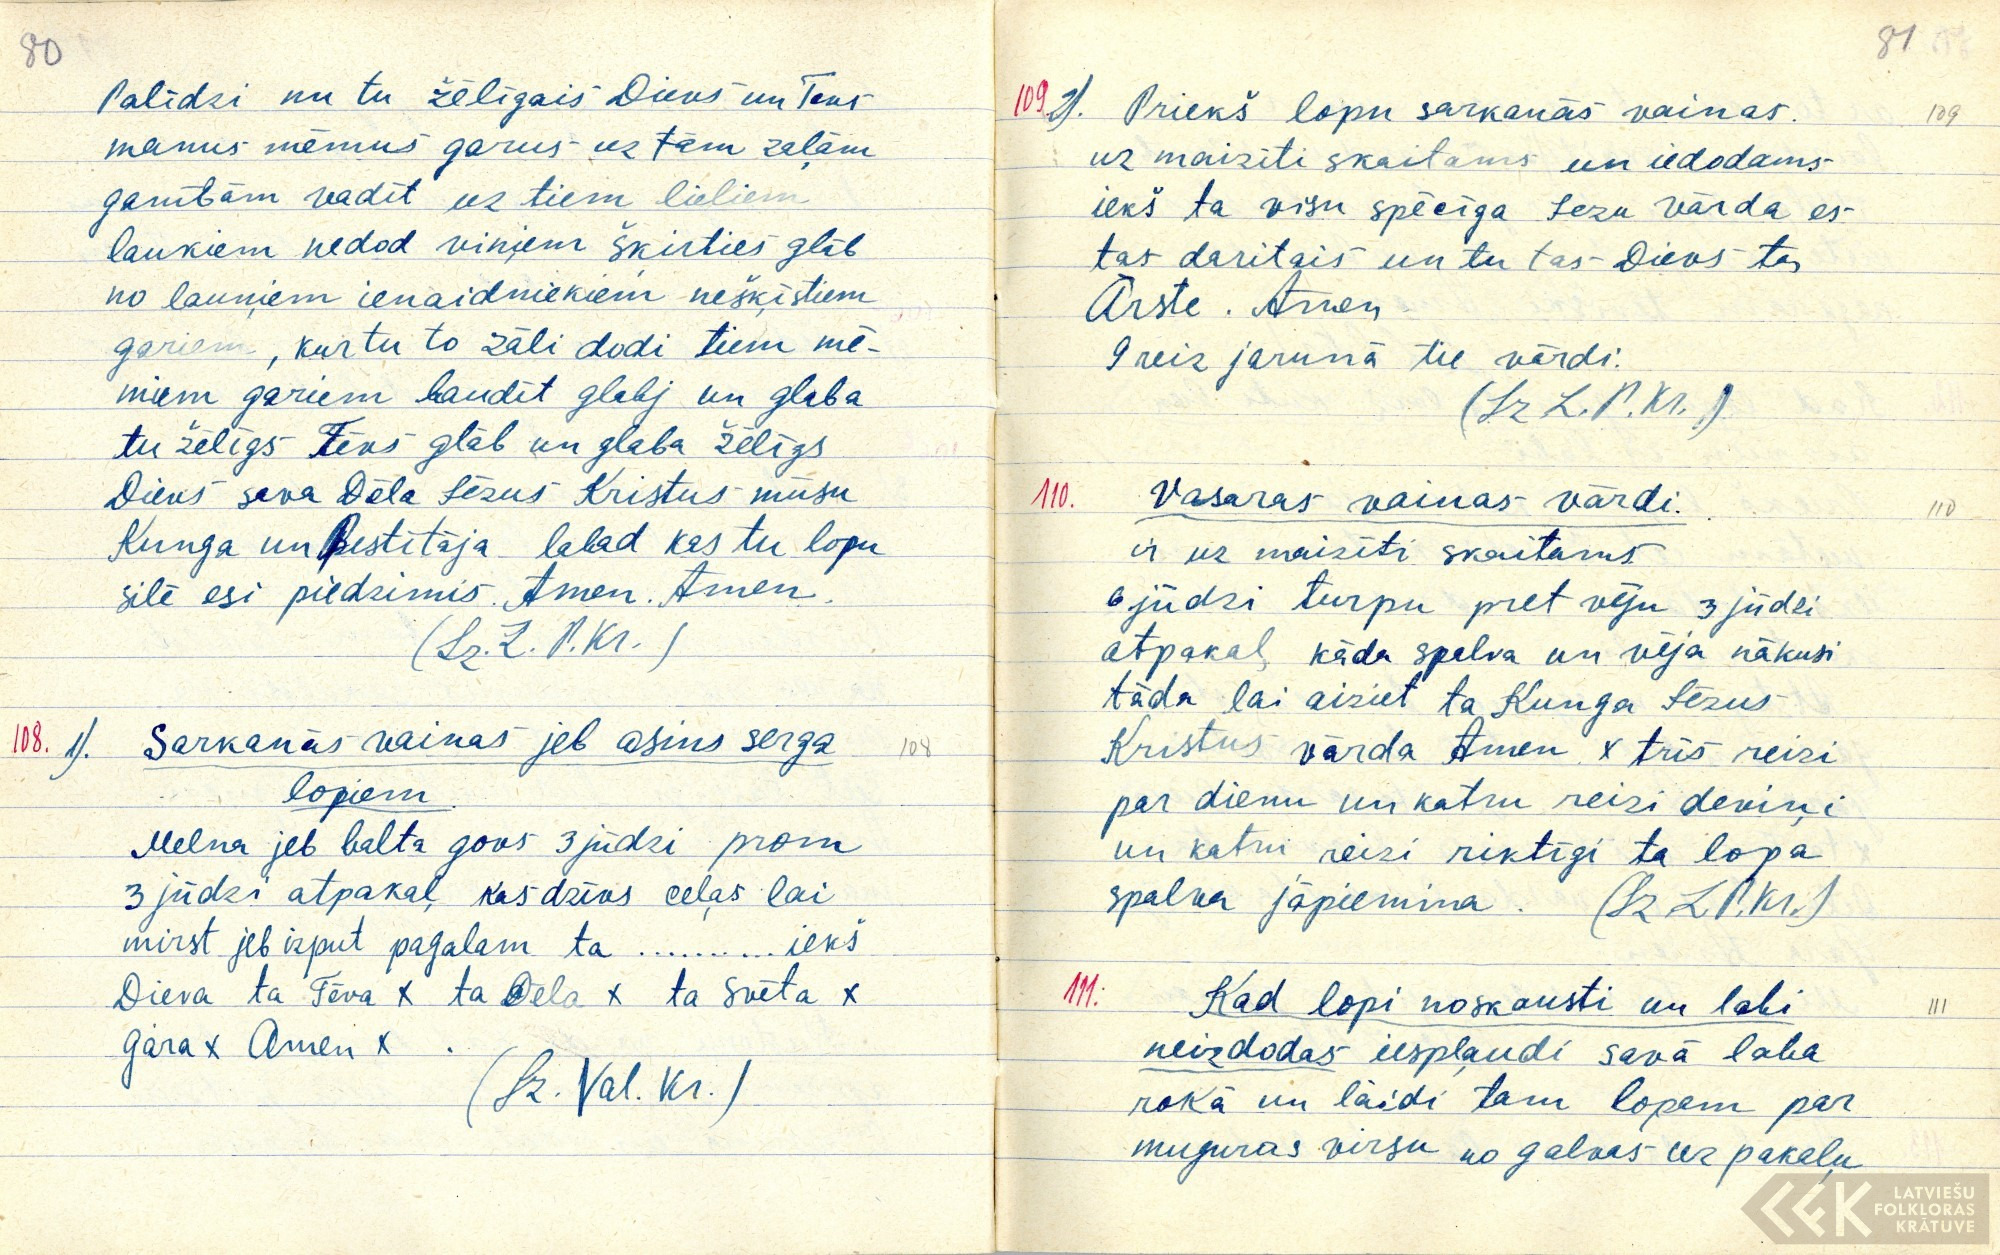 80
Palīdzi nu tu žēlīgais Dievs un Tēvs
manus mēmus garus uz tām zaļām
ganībām vadīt uz tiem lieliem
laukiem nedod viņiem šķirties glāb
no ļauņiem ienaidniekiem nešķīstiem
gariem, kur tu to zāli dodi tiem mē-
miem gariem baudīt glabj un glaba
tu žēlīgs Tēvs glāb un glaba žēlīgs
Dievs sava Dēla Jēzus Kristus mūsu
Kunga un Pestītāja labad kas tu lopu
silē esi piedzimis. Amen. Amen.
(Sz. Z. P. Kr.)
108. 1). Sarkanās vainas jeb asins serga 108
lopiem
Melna jeb balta govs 3 jūdzi prom
3 jūdzi atpakaļ, kas dzīvs ceļas lai
mirst jeb izput pagalam ta .......... iekš
Dieva ta Tēva x ta Dēla x ta Svēta x
gara x Amen x .
(Sz. Val. Kr.)
81
109. 2). Priekš lopu sarkanās vainas. 109
uz maizīti skaitams un iedodams
iekš ta visu spēcīga Jezu vārda es
tas daritais un tu tas Dievs tas
Ārste. Amen
9 reiz jarunā tie vārdi.
(Sz Z. P. Kr.)
110. Vasaras vainas vārdi. 110
ir uz maizīti skaitams
6 jūdzi turpu pret vēju 3 jūdzi
atpakaļ, kāda spalva un vēja nākusi
tāda lai aiziet ta Kunga Jēzus
Kristus vārda Amen x trīs reizi
par dienu un katru reizi deviņi
un katru reizi riktīgi ta lopa
spalva jāpiemina. (Sz Z. P. Kr.)
111. Kad lopi noskausti un labi 111
neizdodas iespļaudi savā laba
rokā un láidi tam lopam par
muguras virsu no galvas uz pakaļu
LATVIEŠU
FOLKLORAS
KRĀTUVE